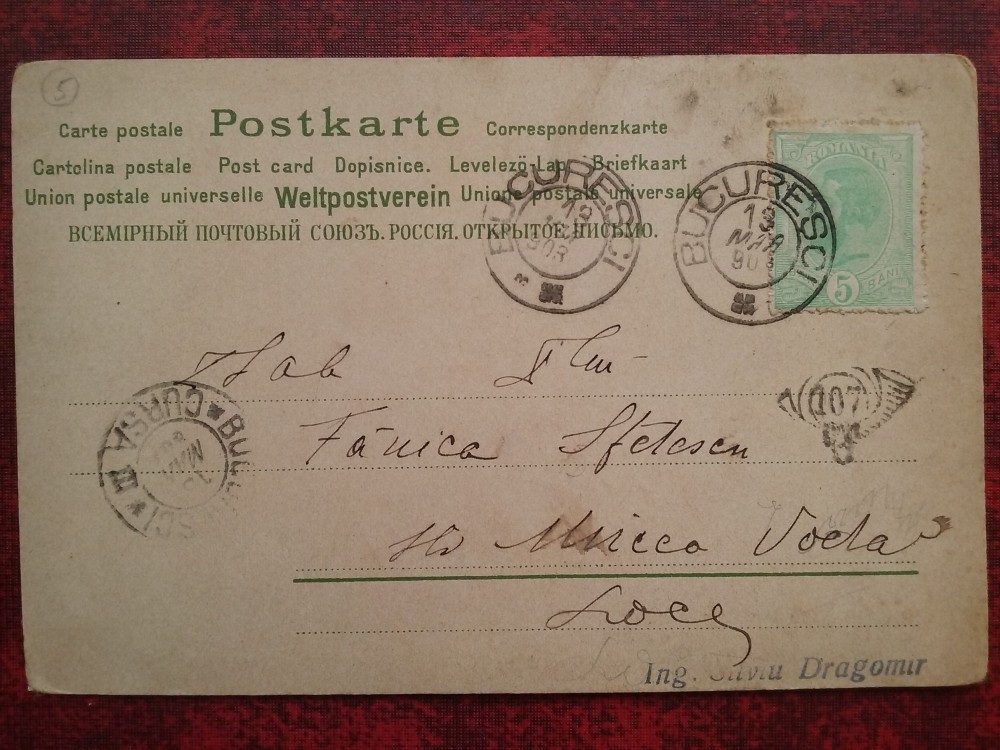 5
Carte postale Postkarte Correspondenzkarte
Cartolina postale Post card Dopisnice. Levelező-Lap Briefkaart
Union postale universelle Weltpostverein Union postale universale
ВСЕМІРНЫЙ ПОЧТОВЫЙ СОЮЗЪ. РОССІЯ. ОТКРЫТОЕ ПИСЬМО.
ROMANIA
5 BANI
BUCURESCI
BUCURESCI
MAR
107
CURSA III
Fănica
Voda
Loco
Ing. Dragomir